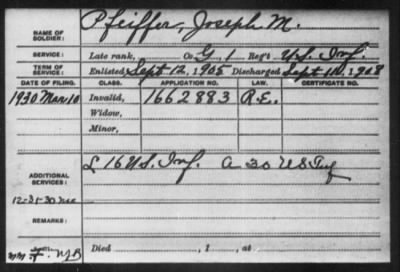 NAME OF SOLDIER: Pfeiffer, Joseph M.
SERVICE: Late rank, Co. G, 1 Reg't U.S. Inf.
TERM OF SERVICE: Enlisted Sept 12, 1905 Discharged Sept 11, 1908
DATE OF FILING. CLASS. APPLICATION NO. LAW. CERTIFICATE NO.
1930 Mar 10 Invalid, 1662883 R.E.
Widow,
Minor,
ADDITIONAL SERVICES: L 16 U.S. Inf. A 30 U S Inf
12-31-30
REMARKS:
Died , 1 , at